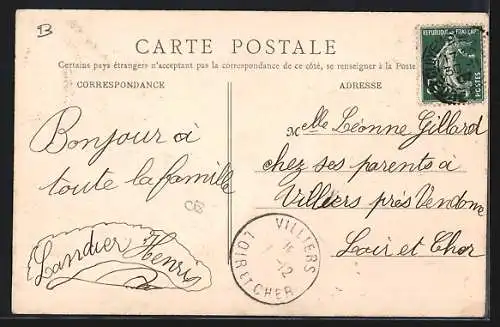 B
CARTE POSTALE
Certains pays étrangers n'acceptant pas la correspondance de ce côté, se renseigner à la Poste
CORRESPONDANCE
ADRESSE
Bonjour à
toute la famille
Landier Henri
Melle Léonne Gillard
chez ses parents à
Villiers près Vendome
Loir et Cher
REPUBLIQUE FRANÇAISE
POSTES
VILLIERS
12
LOIR ET CHER